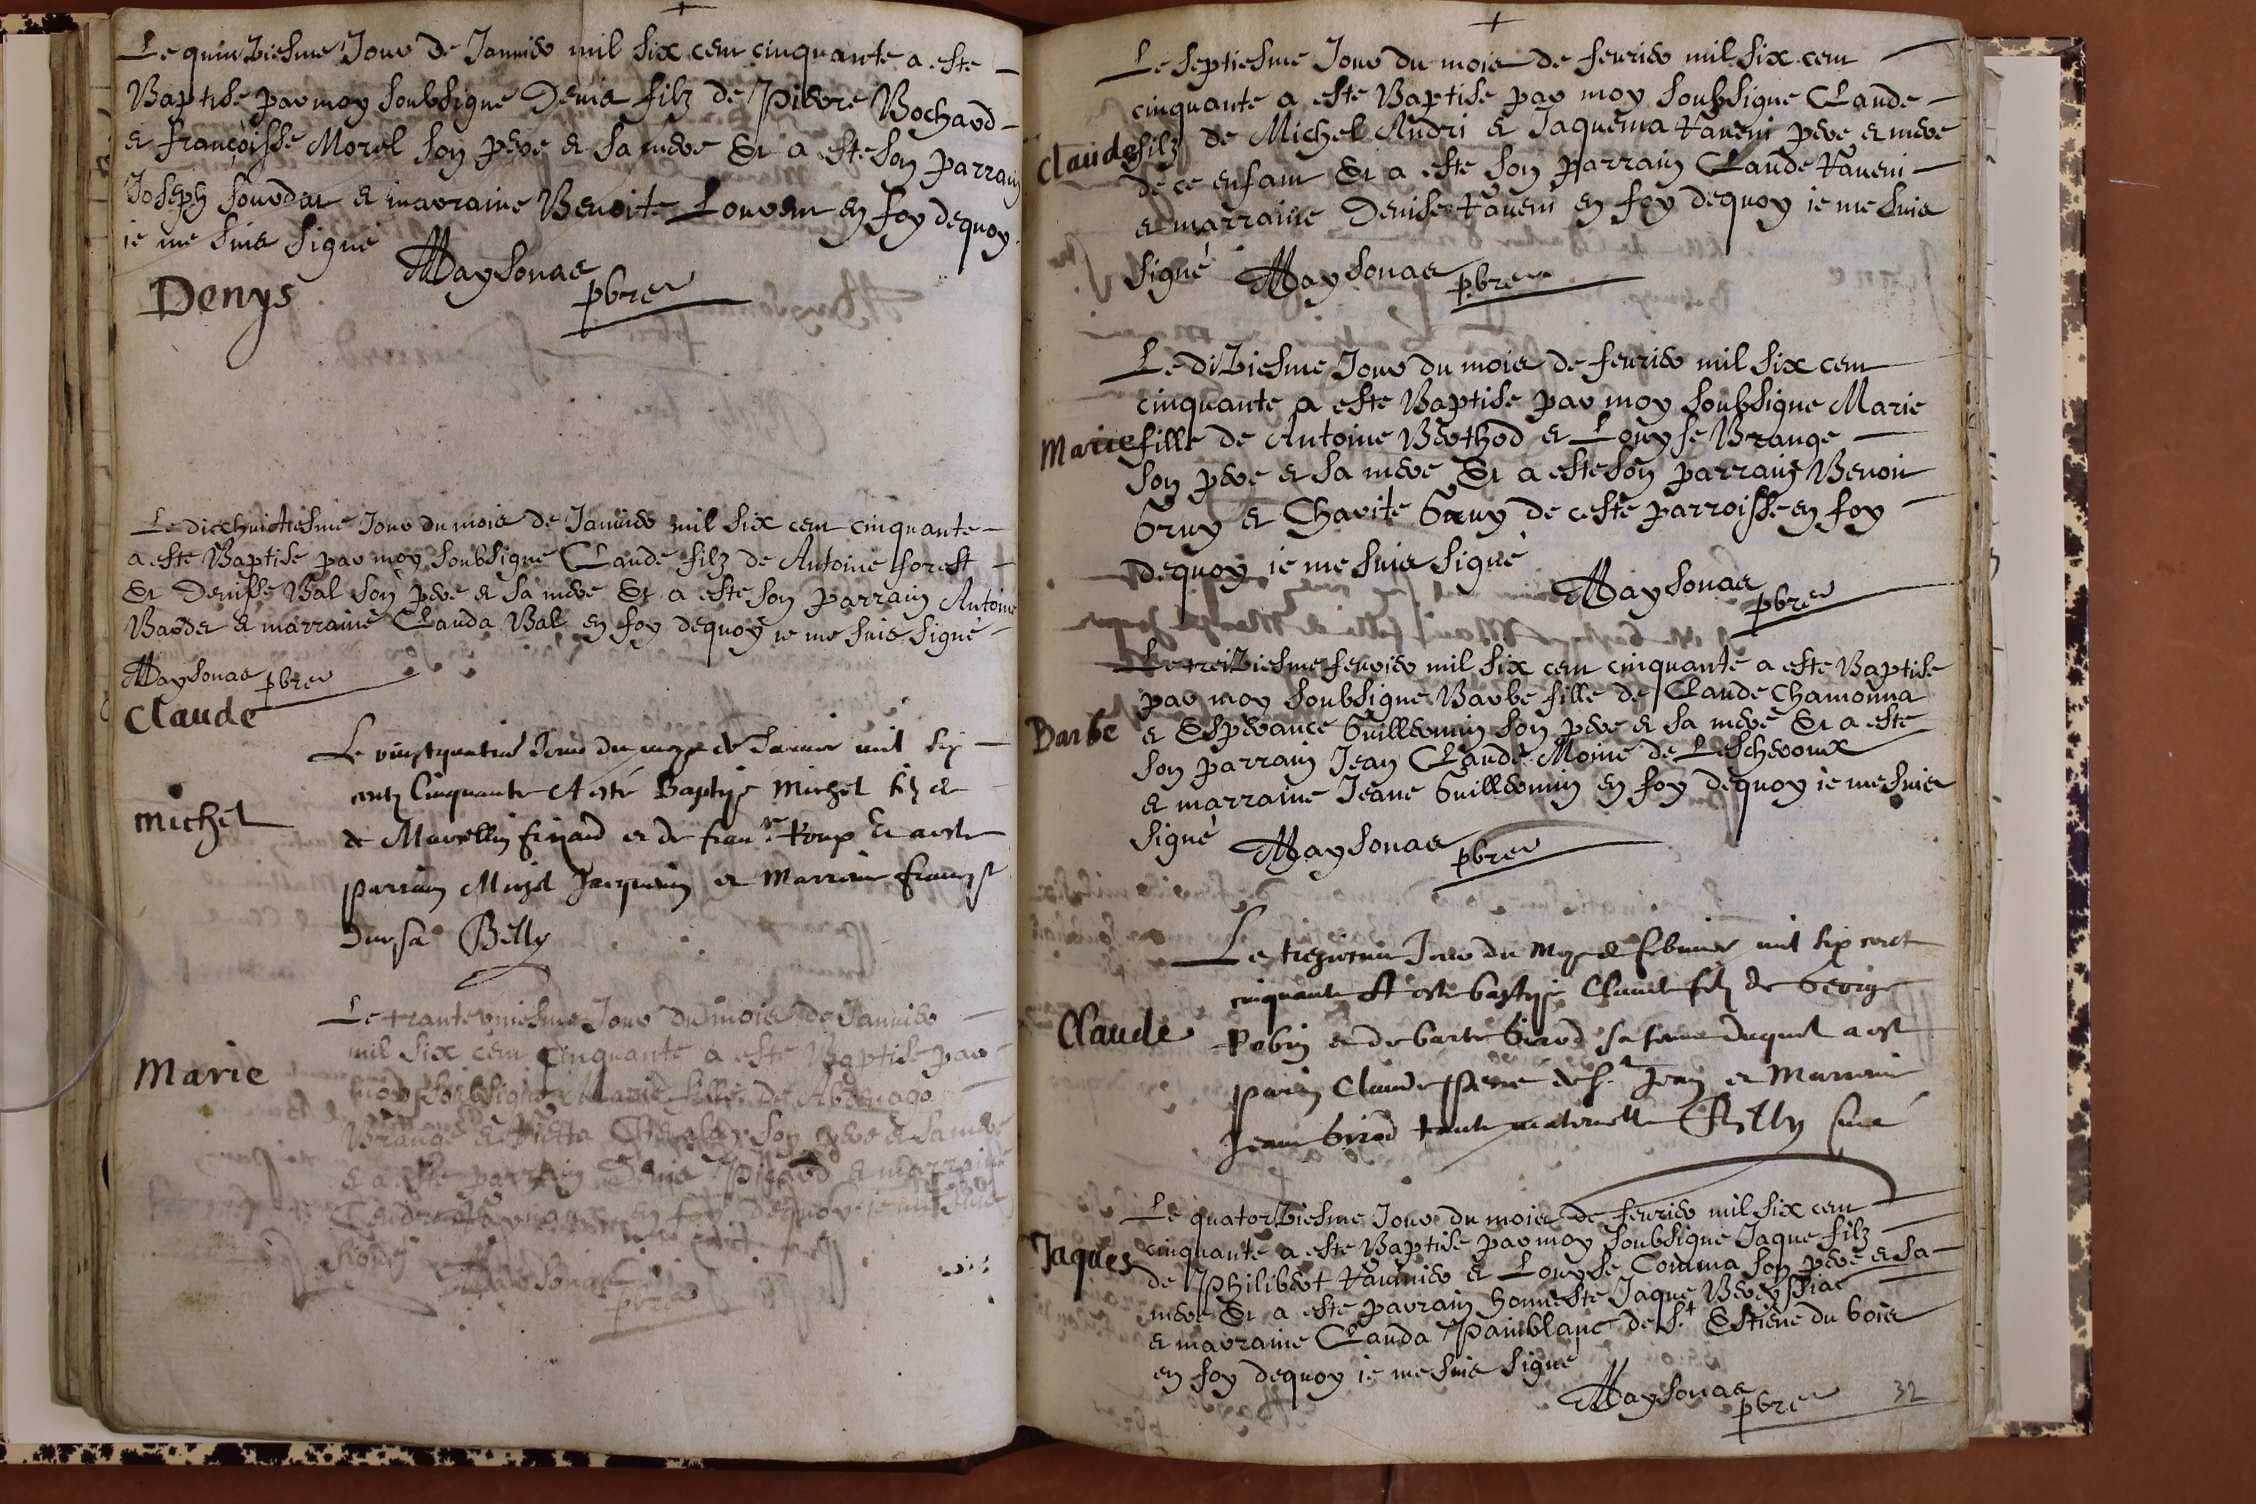 Le quinziesme Jour de Januier mil six cent cinquante a este
Baptise par moy soubsigne Denis filz de Pierre Bochard
et françoisse Morel son pere et sa mere Et a este son parrain
Joseph Jourdan et marraine Benoite Louvem en foy dequoy
ie me suis signé Maysonas
pbre
Denys
Le dicchuictiesme Jour du mois de Januier mil six cent cinquante
a este Baptise par moy soubsigne Claude filz de Antoine forest
Et Denisse Bal son pere et sa mere Et a este son parrain Antoine
Bardet et marraine Clauda Bal en foy dequoy ie me suis signé
Maysonas pbre
Claude
Le vingtquatrie Jour du moys de Januier mil six
centz Cinquante A esté Baptise Michel filz de
michel
de Marcellin et de fran.se Roup Et a este
parrain Michel Jacquemin et Marraine
Bully
Le tranteuniesme Jour du mois de Januier
mil six cent cinquante a este Baptise par
Marie
moy soubsigne Marie fille de Abdenago
Brange et Pietta Chevaler son pere et sa mere
et a este parrain Denis Picard et marraine
en foy dequoy ie me suis
signé Maysonas
pbre
Le septiesme Jour du mois de feurier mil six cent
cinquante a este Baptise par moy soubsigne Claude
Claude filz de Michel Andri et Jaquema Raueni pere et mere
de ce enfant Et a este son parrain Claude Raueni
et marraine Denise Raueni en foy dequoy ie me suis
signé Maysonas
pbre
Le diziesme Jour du mois de feurier mil six cent
cinquante a este Baptise par moy soubsigne Marie
Marie fille de Antoine Berthod et Louyse Brange
son pere et sa mere Et a este son parrain Benoit
Gruy et Charite Gruy de ceste parroisse en foy
dequoy ie me suis signé
Maysonas
pbre
Le treiziesme feurier mil six cent cinquante a este Baptise
par moy soubsigne Barbe fille de Claude Chamonna
Barbe et Esperance Guillermin son pere et sa mere Et a este
son parrain Jean Claude Moine de Lescheroux
et marraine Jeane Guillermin en foy dequoy ie me suis
signé Maysonas
pbre
Le treziesme Jour du moys de febvrier mil six cent
cinquante A este baptise Claude filz de George
Claude Robin et de barbe Girod sa femme duquel a est
parin Claude pierre de St Jean et Marraine
Jeane Girod tante maternelle Bully curé
Le quatorziesme Jour du mois de feurier mil six cent
Jaques cinquante a este Baptise par moy soubsigne Jaque filz
de Philibert Rannier et Louyse Comma son pere et sa
mere Et a este parrain honneste Jaque Bereyssiac
et marraine Clauda Painblanc de St Estiene du bois
en foy dequoy ie me suis signé
Maysonas
pbre
32